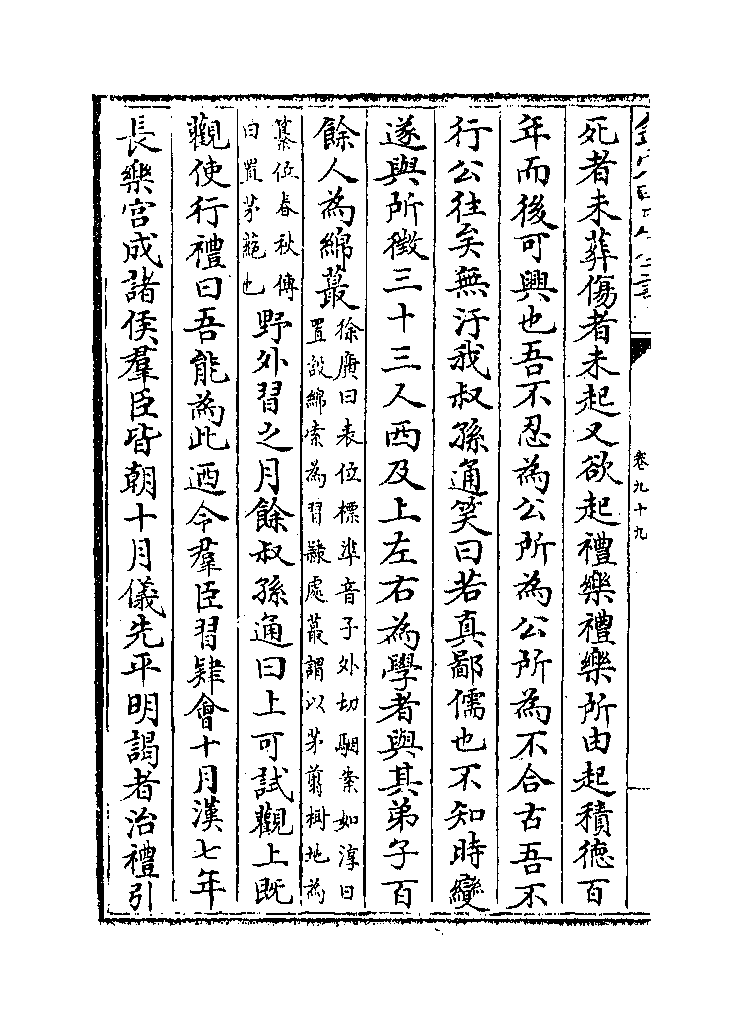 卷九十九
死者未葬傷者未起又欲起禮樂禮樂所由起積德百
年而後可興也吾不忍為公所為公所為不合古吾不
行公往矣無汙我叔孫通笑曰若真鄙儒也不知時變
遂與所徵三十三人西及上左右為學者與其弟子百
餘人為綿蕞
徐廣曰表位標準音子外切駰案如淳曰
置設綿索為習肄處蕞謂以茅剪樹地為
纂位春秋傳
曰置茅蕝也
野外習之月餘叔孫通曰上可試觀上既
觀使行禮曰吾能為此迺令羣臣習肄會十月漢七年
長樂宮成諸侯羣臣皆朝十月儀先平明謁者治禮引